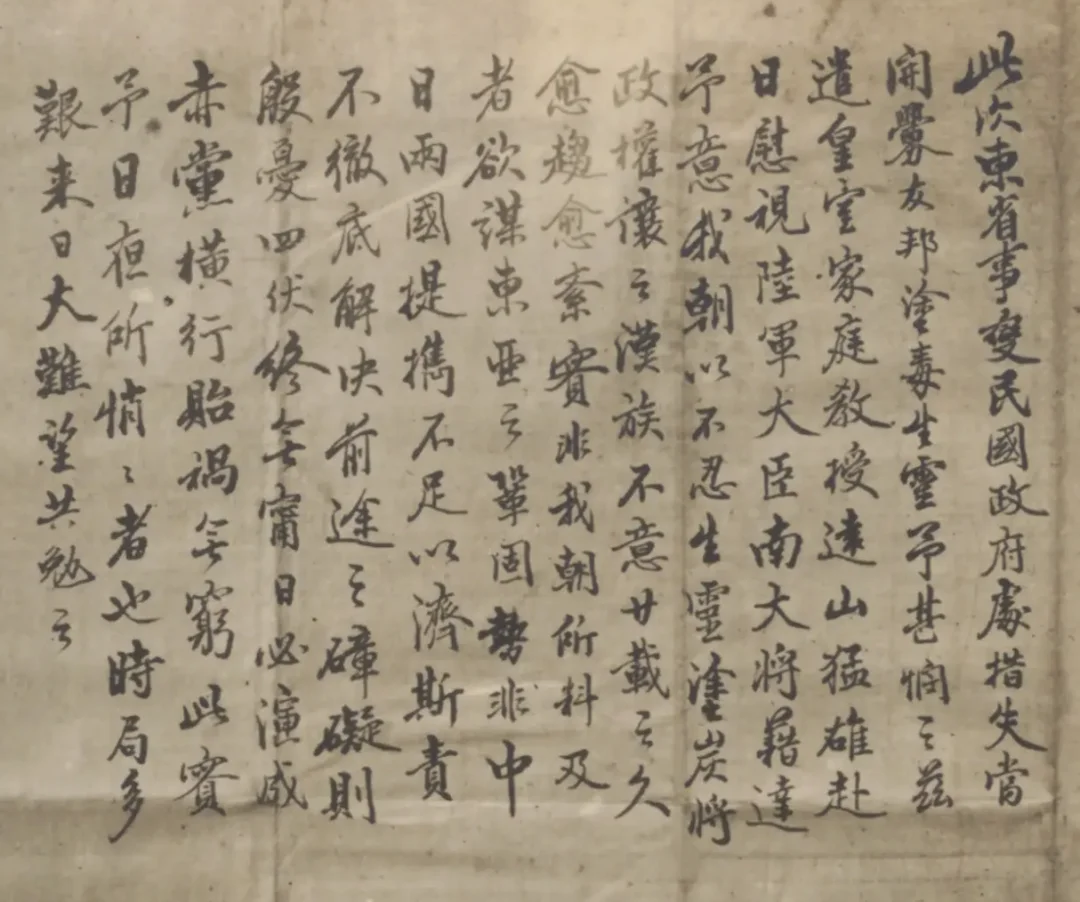 此次東省事變民國政府處措失當
開釁友邦塗毒生靈予甚憫之茲
遣皇室家庭教授遠山猛雄赴
日慰視陸軍大臣南大將藉達
予意我朝以不忍生靈塗炭將
政權讓之漢族不意廿載之久
愈趨愈紊實非我朝所料及
者欲謀東亞之鞏固勢非中
日兩國提攜不足以濟斯責
不徹底解決前途之障礙則
殷憂四伏終無甯日必演成
赤黨橫行貽禍無窮此實
予日夜所悄〻者也時局多
艱来日大難望共勉之